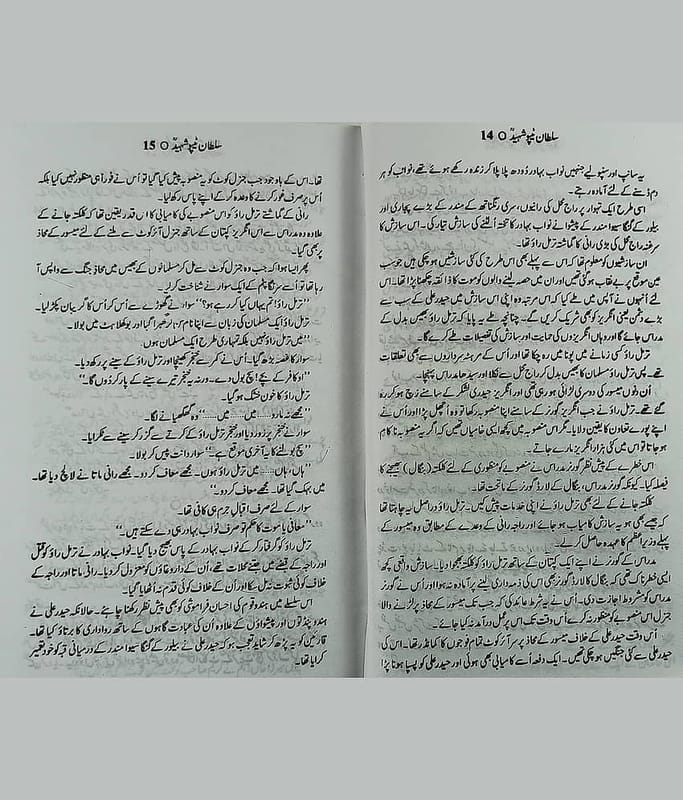 سلطان ٹیپو شہیدؒ ○ 14
یہ سانپ اور سنپولیے جنہیں نواب بہادر دودھ پلا پلا کر زندہ رکھے ہوئے تھے، نواب کو ہر
دم ڈسنے کے لئے آمادہ رہتے۔
اسی طرح ایک تہوار پر راج محل کی رانیوں، سری رنگناتھ کے مندر کے بڑے پجاری اور
بیلور کے گنگا سیوا مندر کے پیشوا نے نواب بہادر کا تختہ اُلٹنے کی سازش تیار کی۔ اس سازش کا
سرغنہ راج محل کی بڑی رانی کا گماشتہ ترمل راؤ تھا۔
ان سازشیوں کو معلوم تھا کہ اس سے پہلے بھی اس طرح کی کئی سازشیں ہو چکی ہیں جو سب
عین موقع پر بے نقاب ہو گئی تھیں اور ان میں حصہ لینے والوں کو موت کا ذائقہ چکھنا پڑا تھا۔ اس
لئے انہوں نے آپس میں طے کیا کہ اس مرتبہ وہ اپنی اس سازش میں حیدر علی کے سب سے
بڑے دشمن یعنی انگریز کو بھی شریک کریں گے۔ چنانچہ طے یہ پایا کہ ترمل راؤ بھیس بدل کے
مدراس جائے گا اور وہاں انگریزوں کی حمایت اور سازش کی تفصیلات طے کرے گا۔
ترمل راؤ کسی زمانے میں پونا میں رہ چکا تھا اور اُس کے مرہٹہ سرداروں سے بھی تعلقات
تھے۔ پس ترمل راؤ مسلمان کا بھیس بدل کر راج محل سے نکلا اور سیدھا مدراس پہنچا۔
اُن دنوں میسور کی دوسری لڑائی ہو رہی تھی اور انگریز حیدری لشکر کے سامنے زچ ہو کر رہ
گئے تھے۔ ترمل راؤ نے جب انگریز گورنر کے سامنے اپنا منصوبہ رکھا تو وہ اُچھل پڑا اور اُس نے
اپنے پورے تعاون کا یقین دلایا۔ مگر اس منصوبہ میں کچھ ایسی خامیاں تھیں کہ اگر یہ منصوبہ ناکام
ہو جاتا تو اس میں کئی ہزار انگریز مارے جاتے۔
اس خطرے کے پیش نظر گورنر مدراس نے منصوبے کو منظوری کے لئے کلکتہ (بنگال) بھیجنے کا
فیصلہ کیا۔ کیونکہ گورنر مدراس، بنگال کے لارڈ گورنر کے ماتحت تھا۔
کلکتہ جانے کے لئے بھی ترمل راؤ نے اپنی خدمات پیش کیں۔ ترمل راؤ دراصل یہ چاہتا تھا
کہ جیسے بھی ہو یہ سازش کامیاب ہو جائے اور راجہ رانی کے وعدے کے مطابق وہ میسور کے
پہلے وزیر اعظم کا عہدہ حاصل کر لے۔
مدراس کے گورنر نے اپنے ایک کپتان کے ساتھ ترمل راؤ کو کلکتہ بھجوا دیا۔ سازش واقعی کچھ
ایسی خطرناک تھی کہ بنگال کا لارڈ گورنر بھی اس کی ذمہ داری لینے پر آمادہ نہ ہوا اور اُس نے گورنر
مدراس کو مشروط اجازت دی۔ اُس نے یہ شرط عائد کی کہ جب تک میسور کے محاذ پر لڑنے والا
جنرل اس منصوبے کو منظور نہ کرے اُس وقت تک اس پر عمل درآمد نہ کیا جائے۔
اُس وقت حیدر علی کے خلاف میسور کے محاذ پر سر آئر کوٹ تمام فوجوں کا کمانڈر تھا۔ اس کی
حیدر علی سے کئی جنگیں ہو چکی تھیں۔ ایک دفعہ اُسے کامیابی بھی ہوئی اور حیدر علی کو پسپا ہونا پڑا
سلطان ٹیپو شہیدؒ ○ 15
تھا۔ اس کے باوجود جب جنرل کوٹ کو یہ منصوبہ پیش کیا گیا تو اُس نے فوراً ہی منظور نہیں کیا بلکہ
اُس پر صرف غور کرنے کا وعدہ کر کے اپنے پاس رکھ لیا۔
رانی کے گماشتے ترمل راؤ کو اس منصوبے کی کامیابی کا اس قدر یقین تھا کہ کلکتہ جانے کے
علاوہ وہ مدراس سے اس انگریز کپتان کے ساتھ جنرل آئر کوٹ سے ملنے کے لئے میسور کے محاذ
پر بھی گیا۔
پھر ایسا ہوا کہ جب وہ جنرل کوٹ سے مل کر مسلمانوں کے بھیس میں محاذ جنگ سے واپس آ
رہا تھا تو اُسے سرنگا پٹم کے ایک سوار نے شناخت کر لیا۔
’’ترمل راؤ! تم یہاں کیا کر رہے ہو؟‘‘ سوار نے گھوڑے سے اُتر کر اُس کا گریبان پکڑ لیا۔
ترمل راؤ ایک مسلمان کی زبان سے اپنا نام سن کر گھبرا گیا اور بوکھلاہٹ میں بولا۔
’’میں ترمل راؤ نہیں بلکہ تمہاری طرح ایک مسلمان ہوں‘‘
سوار کا غصہ بڑھ گیا۔ اُس نے کمر سے خنجر کھینچا اور ترمل راؤ کے سینے پر رکھ دیا۔
’’او کافر کے بچے! سچ بول دے۔ ورنہ یہ خنجر تیرے سینے کے پار کر دوں گا۔‘‘
ترمل راؤ کا خون خشک ہو گیا۔
’’مجھے نہ مارو......میں......میں......‘‘ وہ گھگھیانے لگا۔
سوار نے خنجر پر زور دیا اور خنجر ترمل راؤ کے کرتے سے گزر کر سینے سے ٹکرایا۔
’’سچ بولنے کا یہ آخری موقع ہے۔‘‘ سوار دانت پیس کر بولا۔
’’ہاں، ہاں......میں ترمل راؤ ہوں۔ مجھے معاف کر دو۔ مجھے رانی ماتا نے لالچ دیا تھا۔
میں بہک گیا تھا۔ مجھے معاف کر دو۔‘‘
سوار کے لئے صرف اقبال جرم ہی کافی تھا۔
’’معافی یا موت کا حکم تو صرف نواب بہادر ہی دے سکتے ہیں۔‘‘
ترمل راؤ کو گرفتار کر کے نواب بہادر کے پاس بھیج دیا گیا۔ نواب بہادر نے ترمل راؤ کو قتل
اور راجہ کے قبضے میں جتنے محلات تھے، اُن کے داروغاؤں کو معزول کر دیا۔ رانی ماتا اور راجہ کے
خلاف کوئی ثبوت نہ مل سکا اور اُن کے خلاف کوئی قدم نہ اُٹھایا گیا۔
اس سلسلے میں ہندو قوم کی احسان فراموشی کو بھی پیش نظر رکھنا چاہئے۔ حالانکہ حیدر علی نے
ہندو پنڈتوں اور پیشواؤں کے علاوہ اُن کی عبادت گاہوں کے ساتھ رواداری کا برتاؤ کیا تھا۔
قارئین کو یہ پڑھ کر شاید تعجب ہو کہ حیدر علی نے بیلور کے گنگا سیوا مندر کے درمیانی قبہ کو خود تعمیر
کرایا تھا۔